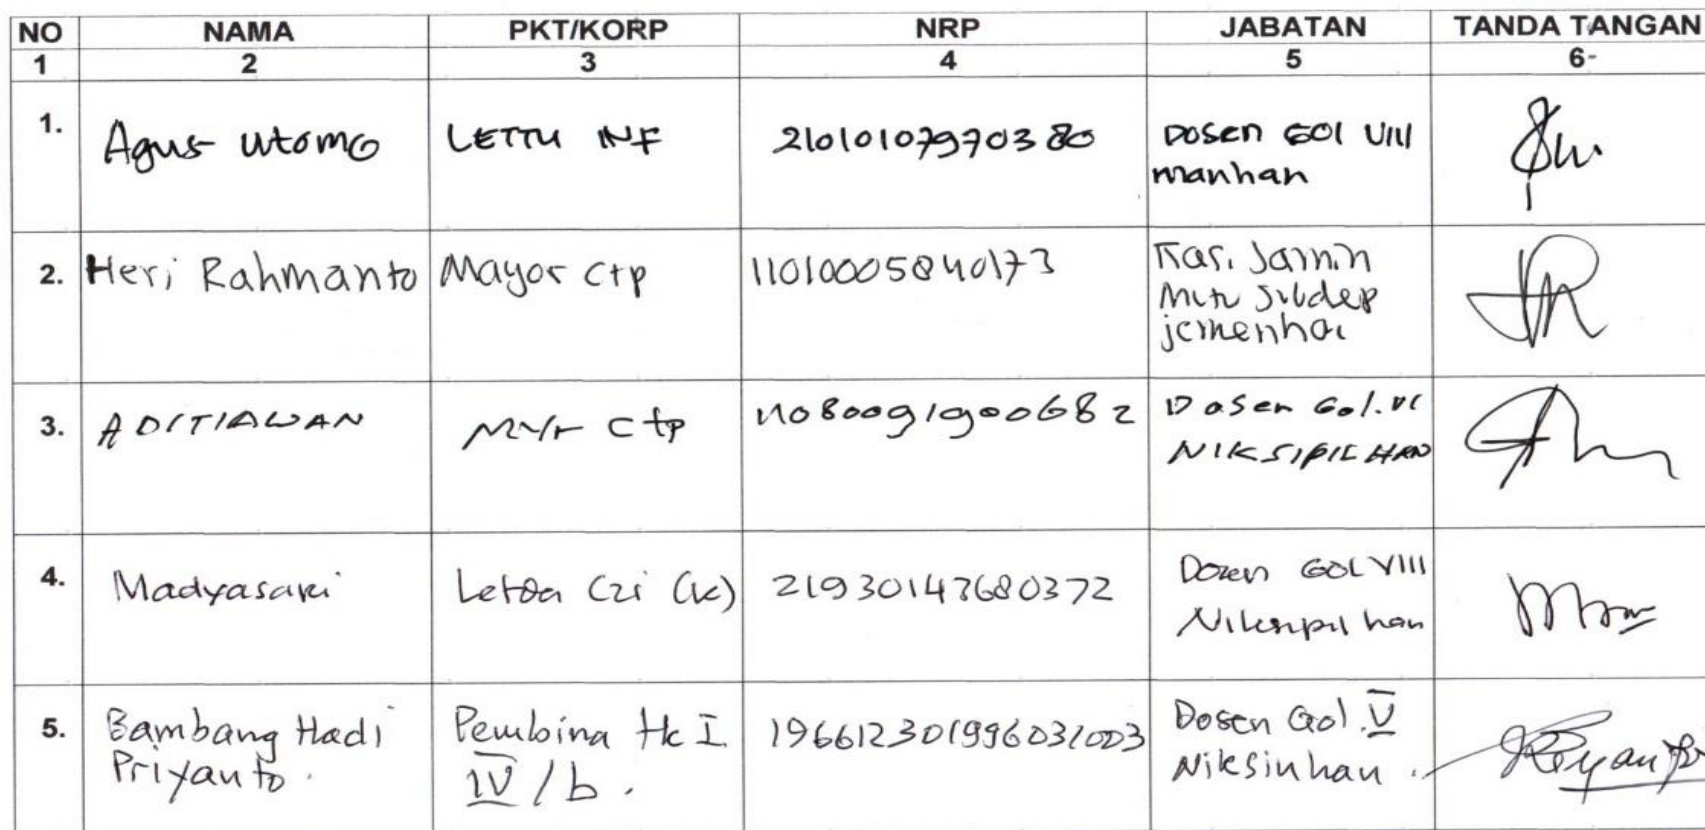 NO NAMA PKT/KORP NRP JABATAN TANDA TANGAN
1 2 3 4 5 6
1. Agus Utomo LETTU INF 21010107970380 Dosen GOl VIII
manhan
2. Heri Rahmanto Mayor Ctp 11010005840173 Kasi Jamin
Mutu Subdep
jemenhan
3. ADITIAWAN Myr Ctp 11080091900682 Dosen Gol.VI
NIKSIPILHAN
4. Madyasari Letda Czi (K) 21930143680372 Dosen GOL VIII
han
5. Bambang Hadi Pembina Tk I 196612301996031003 Dosen Gol. V
Priyanto. IV/b. Niksinhan.